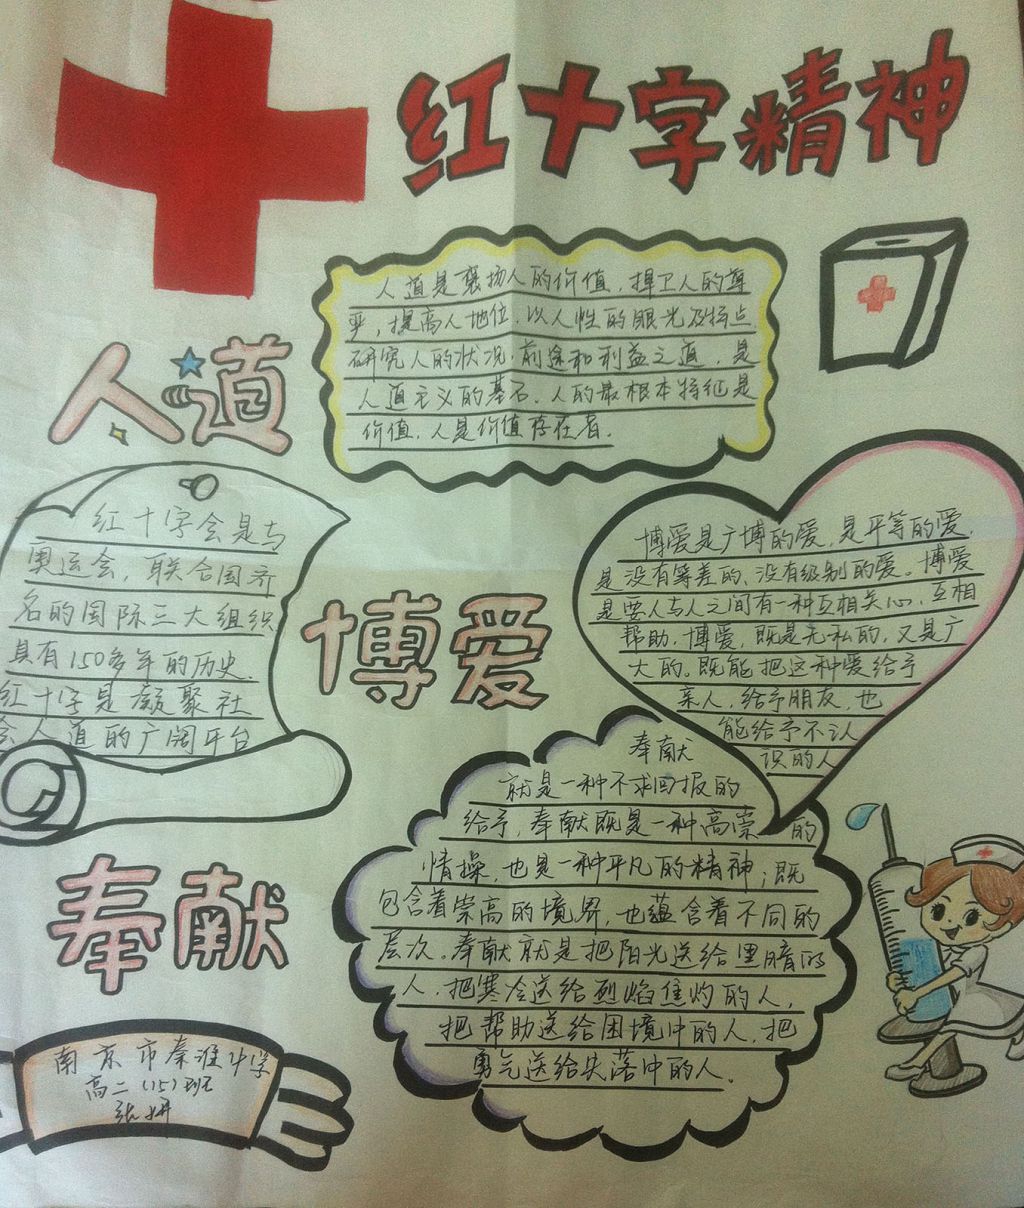 红十字精神
人道是褒扬人的价值，捍卫人的尊
严，提高人地位，以人性的眼光及特点
研究人的状况，前途和利益之道，是
人道主义的基石。人的最根本特征是
价值，人是价值存在者.
人道
红十字会是与
奥运会，联合国齐
名的国际三大组织
具有150多年的历史.
红十字是凝聚社
会人道的广阔平台
博爱
博爱是广博的爱，是平等的爱.
是没有等差的、没有级别的爱。博爱
是要人与人之间有一种互相关心，互相
帮助，博爱，既是无私的，又是广
大的。既能把这种爱给予
亲人，给予朋友，也
能给予不认
识的人
奉献
奉献
就是一种不求回报的
给予，奉献既是一种高崇的
情操，也是一种平凡的精神；既
包含着崇高的境界，也蕴含着不同的
层次。奉献就是把阳光送给黑暗的
人，把寒冷送给烈焰焦灼的人，
把帮助送给困境中的人，把
勇气送给失落中的人.
南京市秦淮中学
高二（15）班
张妍